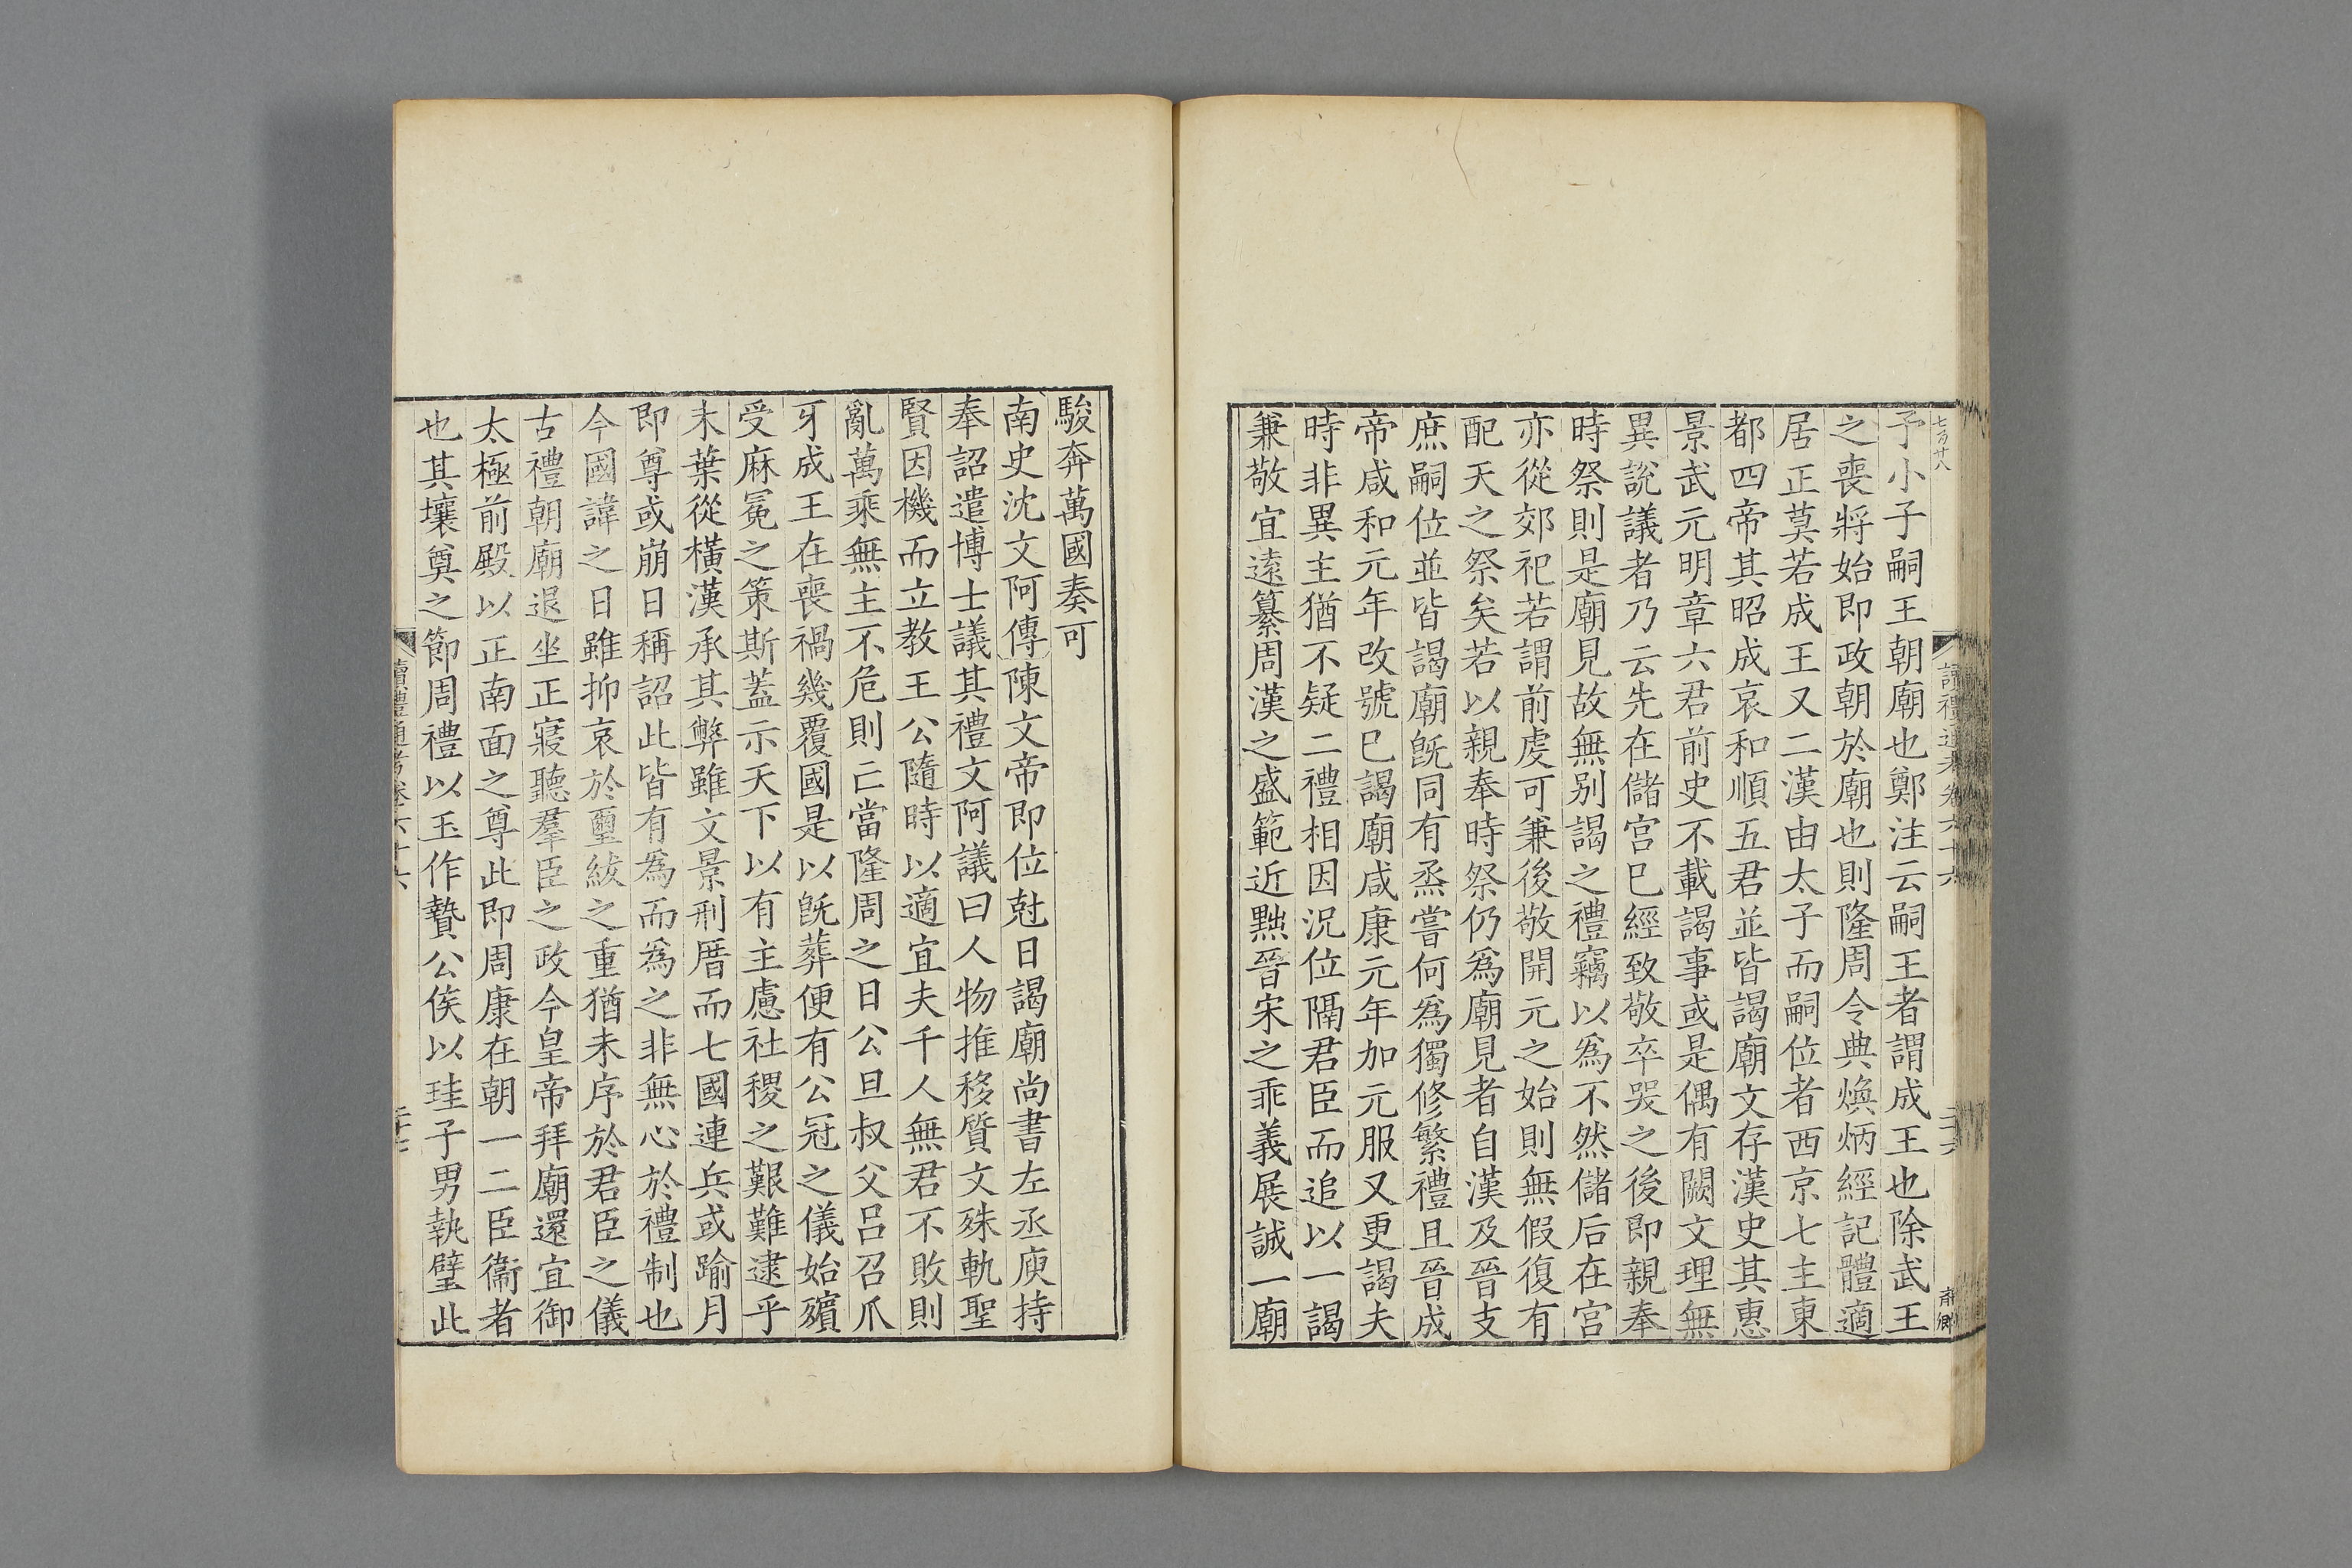 七百廿八
讀禮通考卷六十六
二十六
予小子嗣王朝廟也鄭注云嗣王者謂成王也除武王
之喪將始即政朝於廟也則隆周令典煥炳經記體適
居正莫若成王又二漢由太子而嗣位者西京七主東
都四帝其昭成哀和順五君並皆謁廟文存漢史其惠
景武元明章六君前史不載謁事或是偶有闕文理無
異說議者乃云先在儲宮巳經致敬卒哭之後即親奉
時祭則是廟見故無别謁之禮竊以爲不然儲后在宮
亦從郊祀若謂前虔可兼後敬開元之始則無假復有
配天之祭矣若以親奉時祭仍爲廟見者自漢及晉支
庶嗣位並皆謁廟旣同有烝嘗何爲獨修繁禮且晉成
帝咸和元年改號巳謁廟咸康元年加元服又更謁夫
時非異主猶不疑二禮相因況位隔君臣而追以一謁
兼敬宜遠纂周漢之盛範近黜晉宋之乖義展誠一廟
駿奔萬國奏可
南史沈文阿傳陳文帝即位尅日謁廟尚書左丞庾持
奉詔遣博士議其禮文阿議曰人物推移質文殊軌聖
賢因機而立教王公隨時以適宜夫千人無君不敗則
亂萬乘無主不危則亡當隆周之日公旦叔父呂召爪
牙成王在喪禍幾覆國是以旣葬便有公冠之儀始殯
受麻冕之策斯蓋示天下以有主慮社稷之艱難逮乎
末葉從橫漢承其弊雖文景刑厝而七國連兵或踰月
即尊或崩日稱詔此皆有爲而爲之非無心於禮制也
今國諱之日雖抑哀於璽紱之重猶未序於君臣之儀
古禮朝廟退坐正寢聽羣臣之政今皇帝拜廟還宜御
太極前殿以正南面之尊此即周康在朝一二臣衞者
也其壤奠之節周禮以玉作贄公侯以珪子男執璧此
讀禮通考卷六十六
二十七